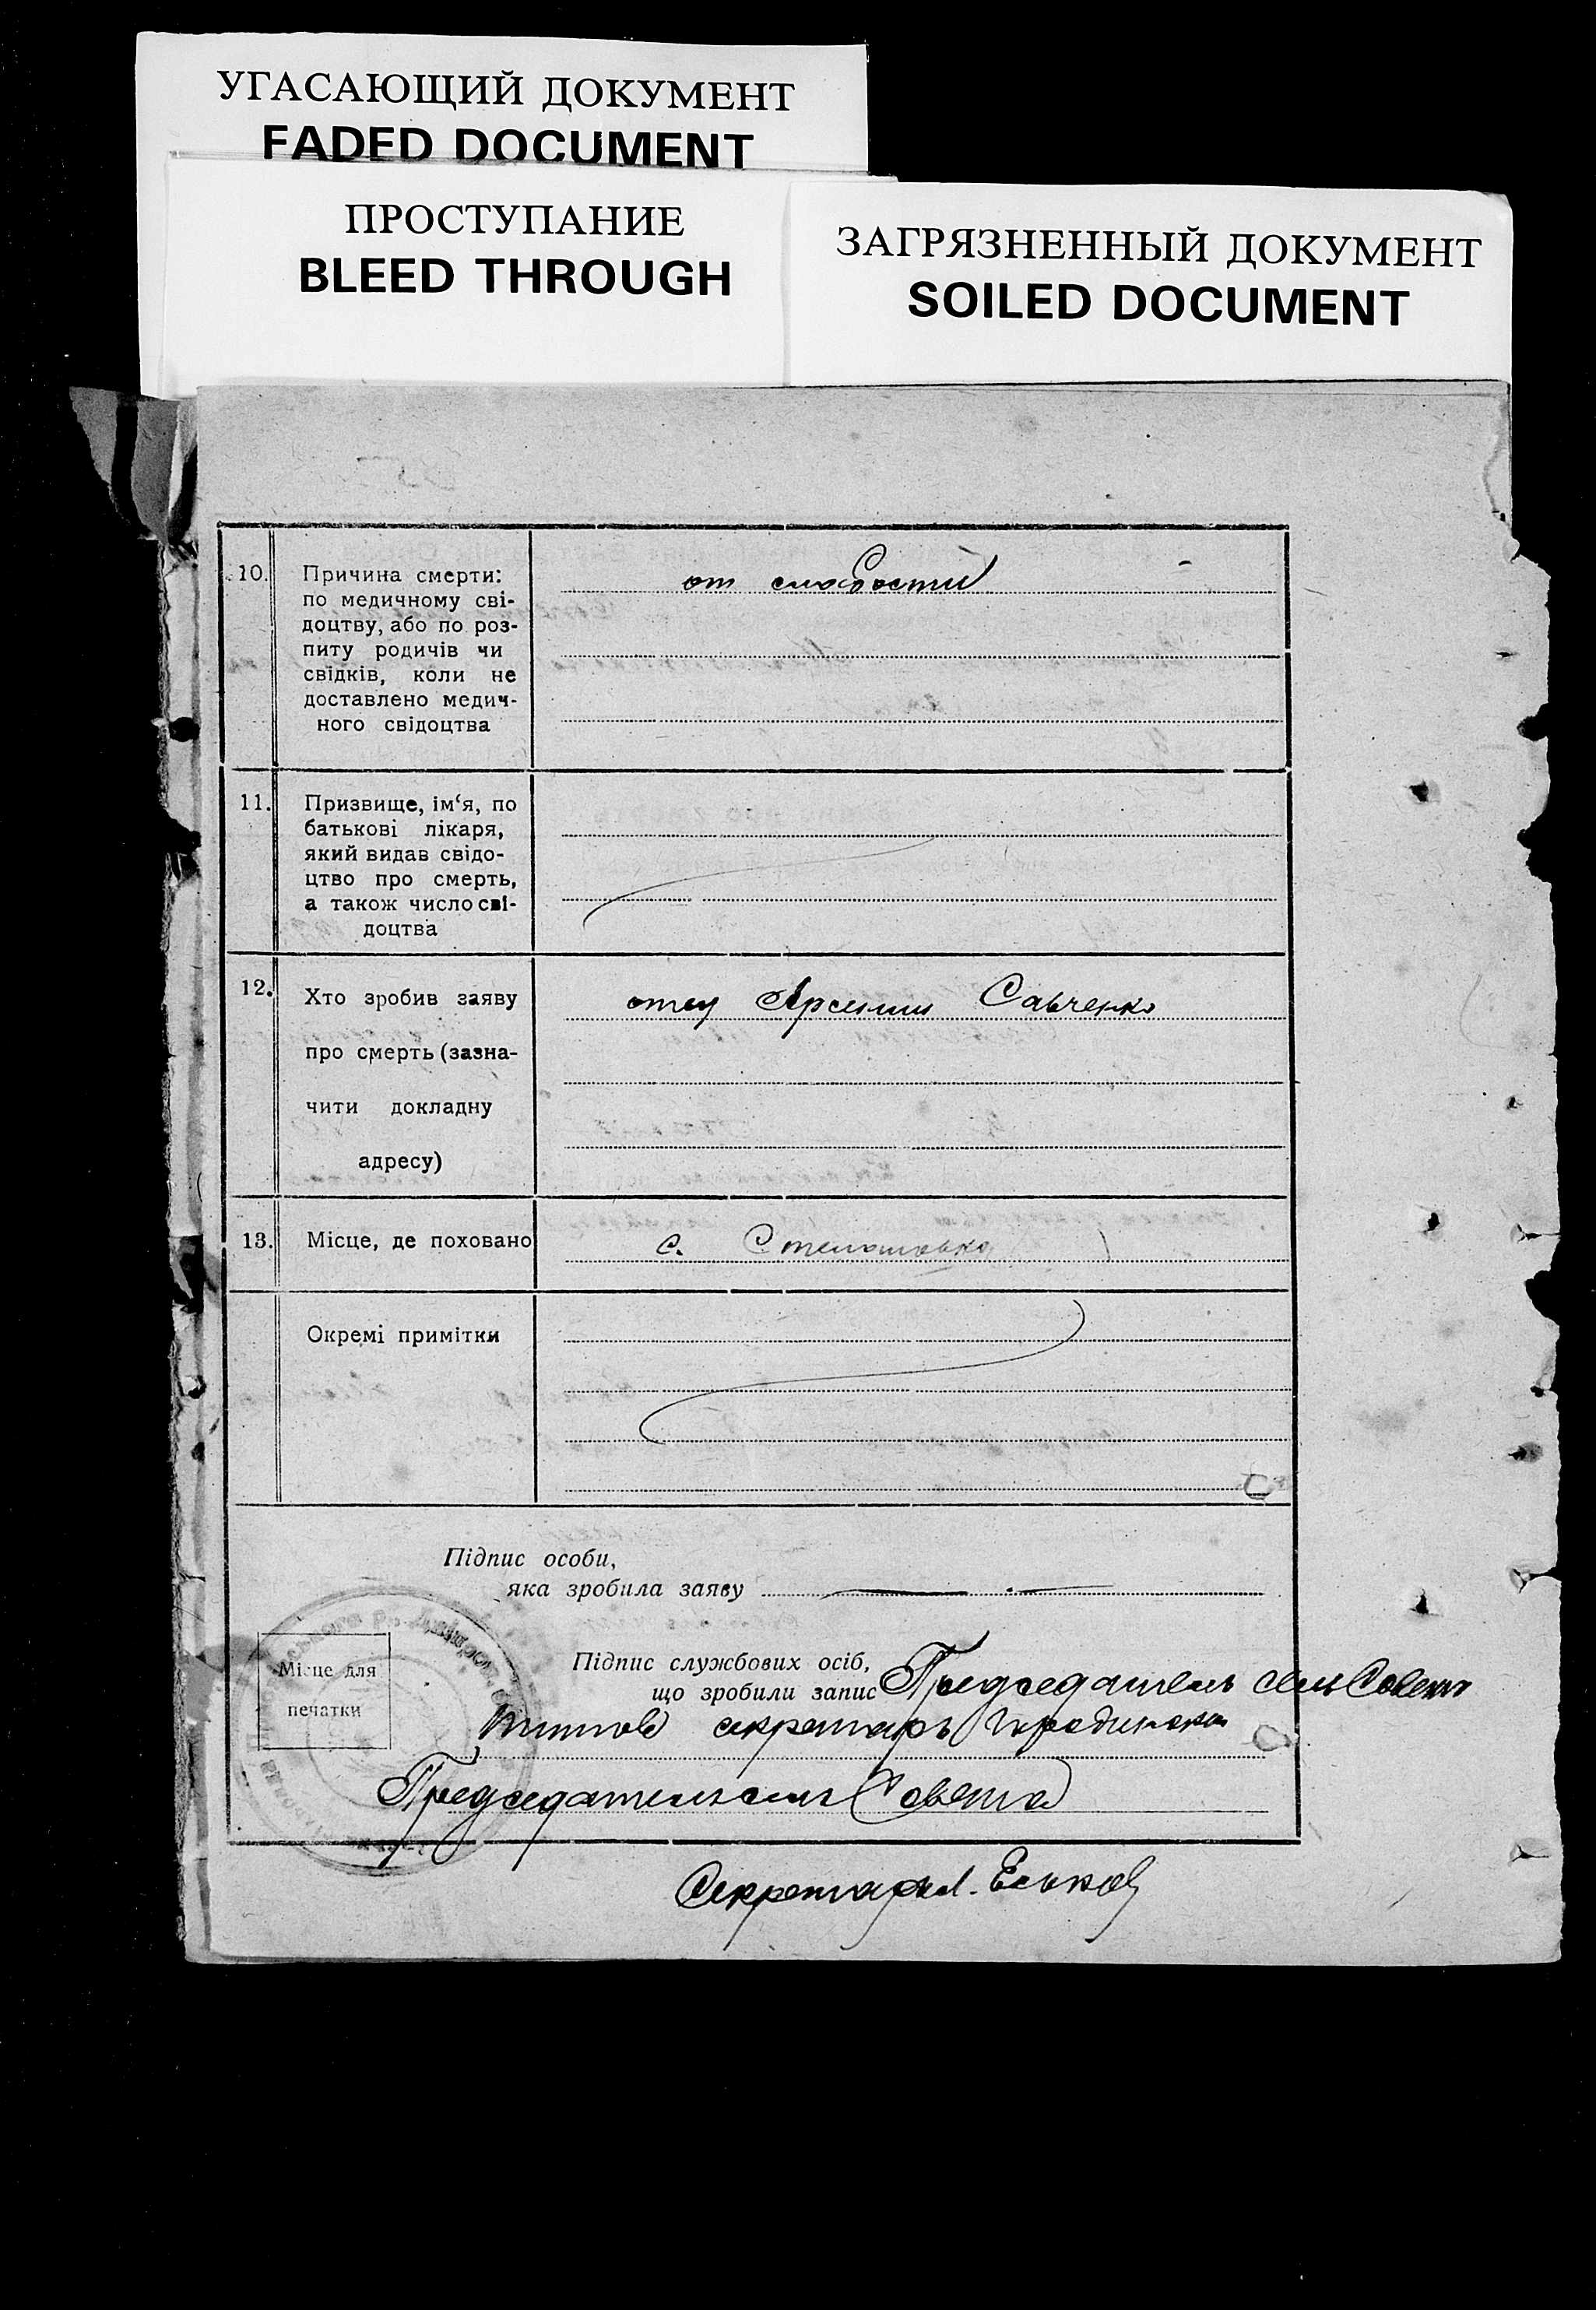 УГАСАЮЩИЙ ДОКУМЕНТ
FADED DOCUMENT
ПРОСТУПАНИЕ
BLEED THROUGH
ЗАГРЯЗНЕННЫЙ ДОКУМЕНТ
SOILED DOCUMENT
10.
Причина смерти:
по медичному сві-
доцтву, або по роз-
питу родичів чи
свідків, коли не
доставлено медич-
ного свідоцтва
от слабости
11.
Призвище, ім‘я, по
батькові лікаря,
який видав свідо-
цтво про смерть,
а також число сві-
доцтва
12.
Хто зробив заяву
про смерть (зазна-
чити докладну
адресу)
отец Арсений Савченко
13.
Місце, де поховано
с.
Окремі примітки
Підпис особи,
яка зробила заяву
Місце для
печатки
Підпис службових осіб,
що зробили запис
Председатель сельСовета
секретарь
Председатель сель Совета
Секретарь